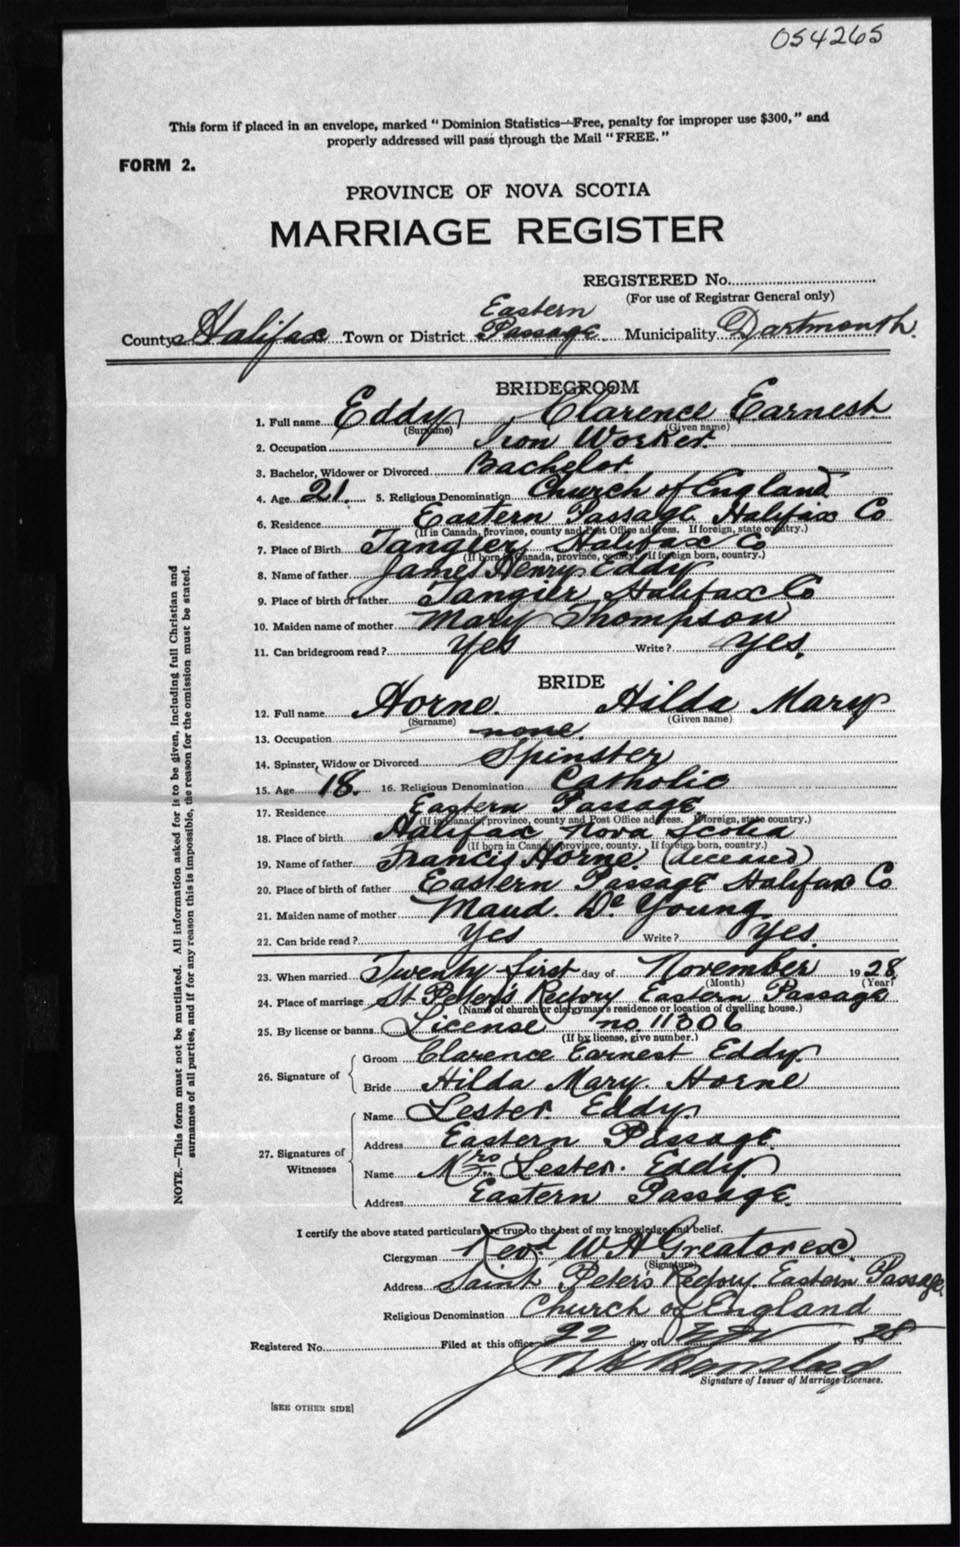 054265
This form if placed in an envelope, marked "Dominion Statistics—Free, penalty for improper use $300," and
properly addressed will pass through the Mail "FREE."
FORM 2.
PROVINCE OF NOVA SCOTIA
MARRIAGE REGISTER
REGISTERED No.
(For use of Registrar General only)
County Halifax Town or District Eastern Passage Municipality Dartmouth
BRIDEGROOM
1. Full name Eddy Clarence Earnest
(Surname) (Given name)
2. Occupation Iron Worker.
3. Bachelor, Widower or Divorced Bachelor.
4. Age 21. 5. Religious Denomination Church of England
6. Residence Eastern Passage Halifax Co
(If in Canada, province, county and Post Office address. If foreign, state country.)
7. Place of Birth Tangier Halifax Co
(If born in Canada, province, county. If foreign born, country.)
8. Name of father James Henry Eddy
9. Place of birth of father Tangier Halifax Co
10. Maiden name of mother Mary Thompson
11. Can bridegroom read? Yes Write? Yes.
BRIDE
12. Full name Horne. Hilda Mary
(Surname) (Given name)
13. Occupation none.
14. Spinster, Widow or Divorced Spinster
15. Age 18. 16. Religious Denomination Catholic
17. Residence Eastern Passage.
(If in Canada, province, county and Post Office address. If foreign, state country.)
18. Place of birth Halifax Nova Scotia
(If born in Canada, province, county. If foreign born, country.)
19. Name of father Francis Horne. (deceased)
20. Place of birth of father Eastern Passage Halifax Co
21. Maiden name of mother Maud. De Young
22. Can bride read? Yes Write? Yes.
23. When married Twenty first day of November 1928
(Month) (Year)
24. Place of marriage St Peter's Rectory Eastern Passage
(Name of church or clergyman's residence or location of dwelling house.)
25. By license or banns License no. 11306
(If by license, give number.)
26. Signature of
Groom Clarence Earnest Eddy.
Bride Hilda Mary. Horne
27. Signatures of Witnesses
Name Lester. Eddy.
Address Eastern Passage.
Name Mrs. Lester. Eddy
Address Eastern Passage.
I certify the above stated particulars are true to the best of my knowledge and belief.
Clergyman Revd W A Greatorex.
(Signature)
Address Saint Peter's Rectory Eastern Passage.
Religious Denomination Church of England
Registered No. Filed at this office 22 day of Nov 1928
Signature of Issuer of Marriage Licenses.
[SEE OTHER SIDE]
NOTE.—This form must not be mutilated. All information asked for is to be given, including full Christian and
surnames of all parties, and if for any reason this is impossible, the reason for the omission must be stated.